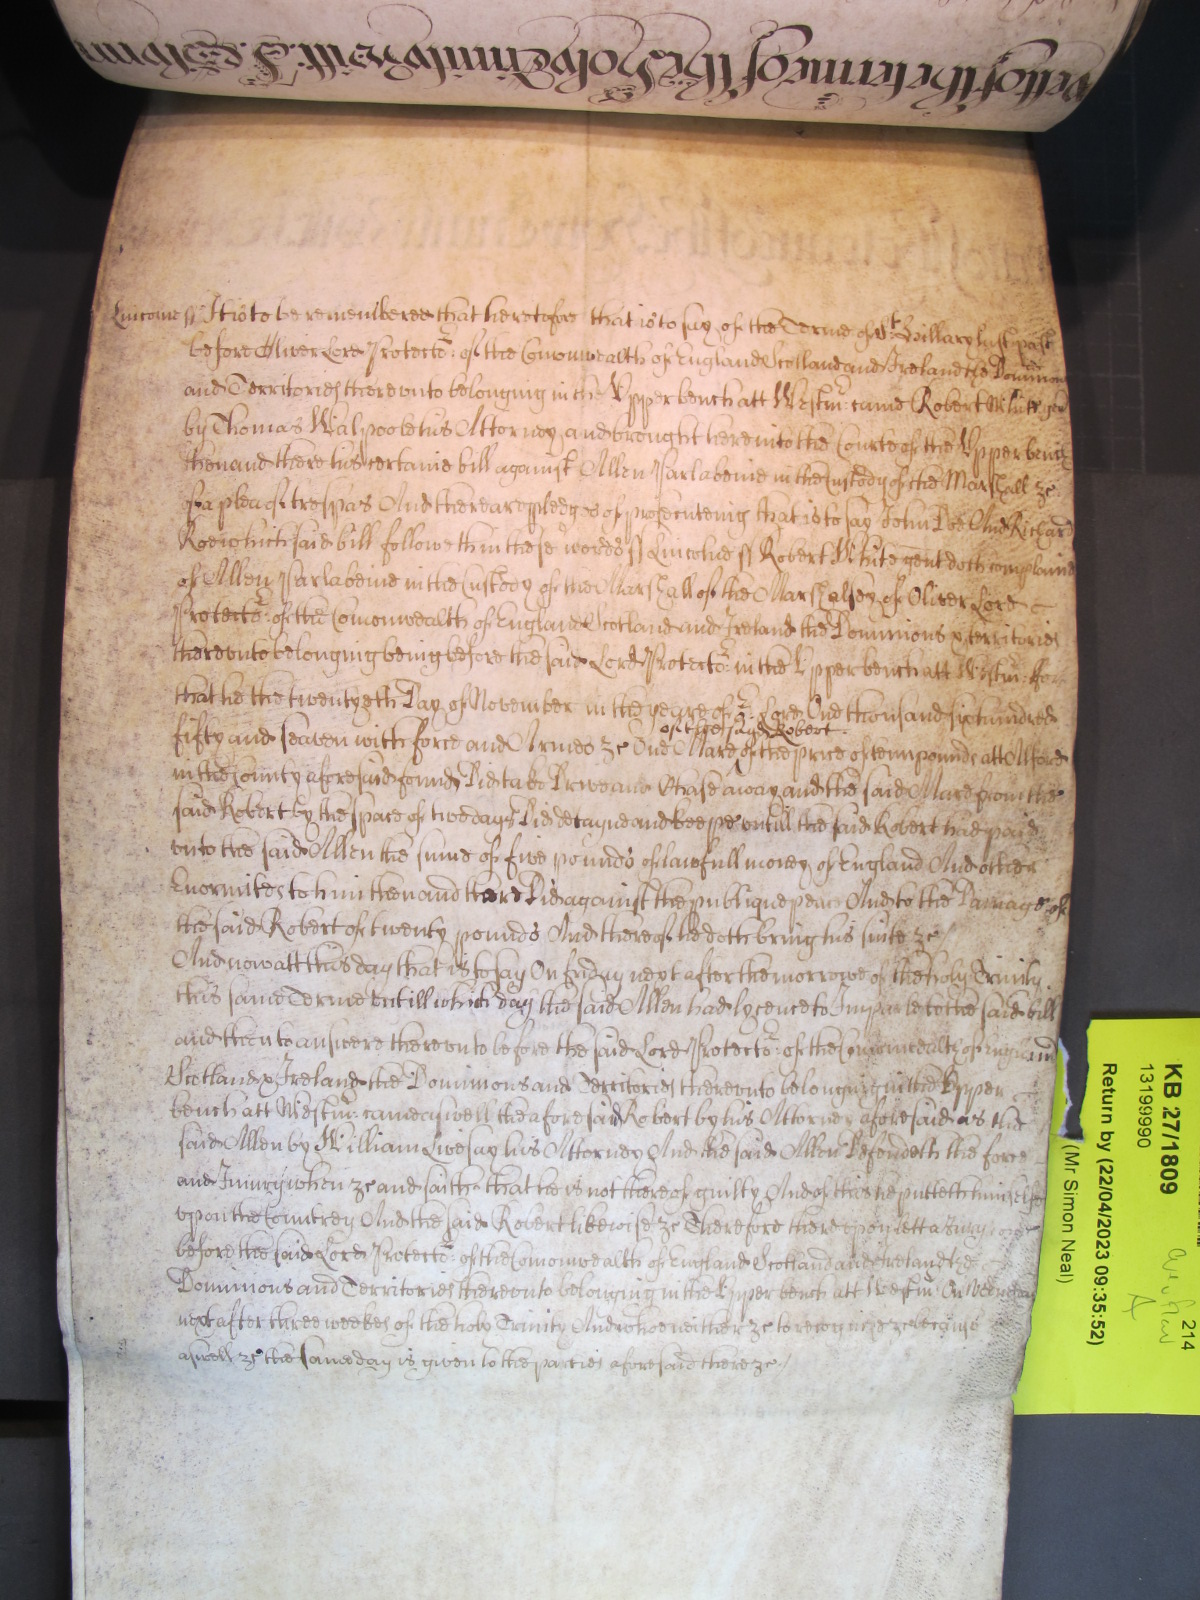 of the terme of the holye
Lincolne ss It is to be remembered that heretofore that is to say of the Terme of St: Hillary last past
before Oliver Lord Protector: of the Comonwealth of England Scotland and Ireland the Dominions
and Territories thereunto belonging in the Upper bench att Westmr: came Robert White gent
by Thomas Walpoole his Attorney and brought here into the Courte of the Upper bench
then and there his certaine bill against Allen Parlabeine in the Custody of the Marshall &c
of a plea of trespas And there are pledges of prosecuteing that is to say John Doe And Richard
Roe which said bill followeth in these words ss Lincolne ss Robert White gent doth complaine
of Allen Parlabeine in the Custody of the Marshall of the Marshalsey of Oliver Lord
Protector: of the Comonwealth of England Scotland and Ireland the Dominions & territories
thereunto belonging being before the said Lord Protector: in the Upper bench att Westmr: For
that he the twentyeth Day of November in the yeare of or: Lord One thousand six hundred
of the sayd Robert
fifty and seaven with force and Armes &c One Mare of the price of tenn pounds att Alford
in the County aforesaid found Did take Drive and Chase away and the said Mare from the
said Robert by the space of two days Did detayne and keepe untill the said Robert had paid
unto the said Allen the sume of five pounds of lawfull money of England And other
Enormites to him then and there Did against the publique peace And to the Damage of
the said Robert of twenty pounds And thereof he doth bring his suite &c /
And now att this day that is to say On Friday next after the morrowe of the holy Trinity
this same Terme untill which day the said Allen had lycence to Imparle to the said bill
and then to answere thereunto before the said Lord Protector: of the Comonwealth of England
Scotland & Ireland the Dominions and Territories thereunto belonging in the Upper
bench att Westmr: came aswell the aforesaid Robert by his Attorney aforesaid as the
said Allen by William Livesay his Attorney And the said Allen Defendeth the force
and Injury when &c and saith that he is not thereof guilty And of this he putteth himselfe
upon the Countrey And the said Robert likewise &c Therefore thereupon lett a Jury come
before the said Lord Protector: of the Comonwealth of England Scotland and Ireland the
Dominions and Territories thereunto belonging in the Upper bench att Westmr: On
next after three weekes of the holy Trinity And who neither &c to recognize &c because
aswell &c the same day is given to the parties aforesaid there &c /
KB 27/1809
13199990
Return by (22/04/2023 09:35:52)
(Mr Simon Neal)
214
A